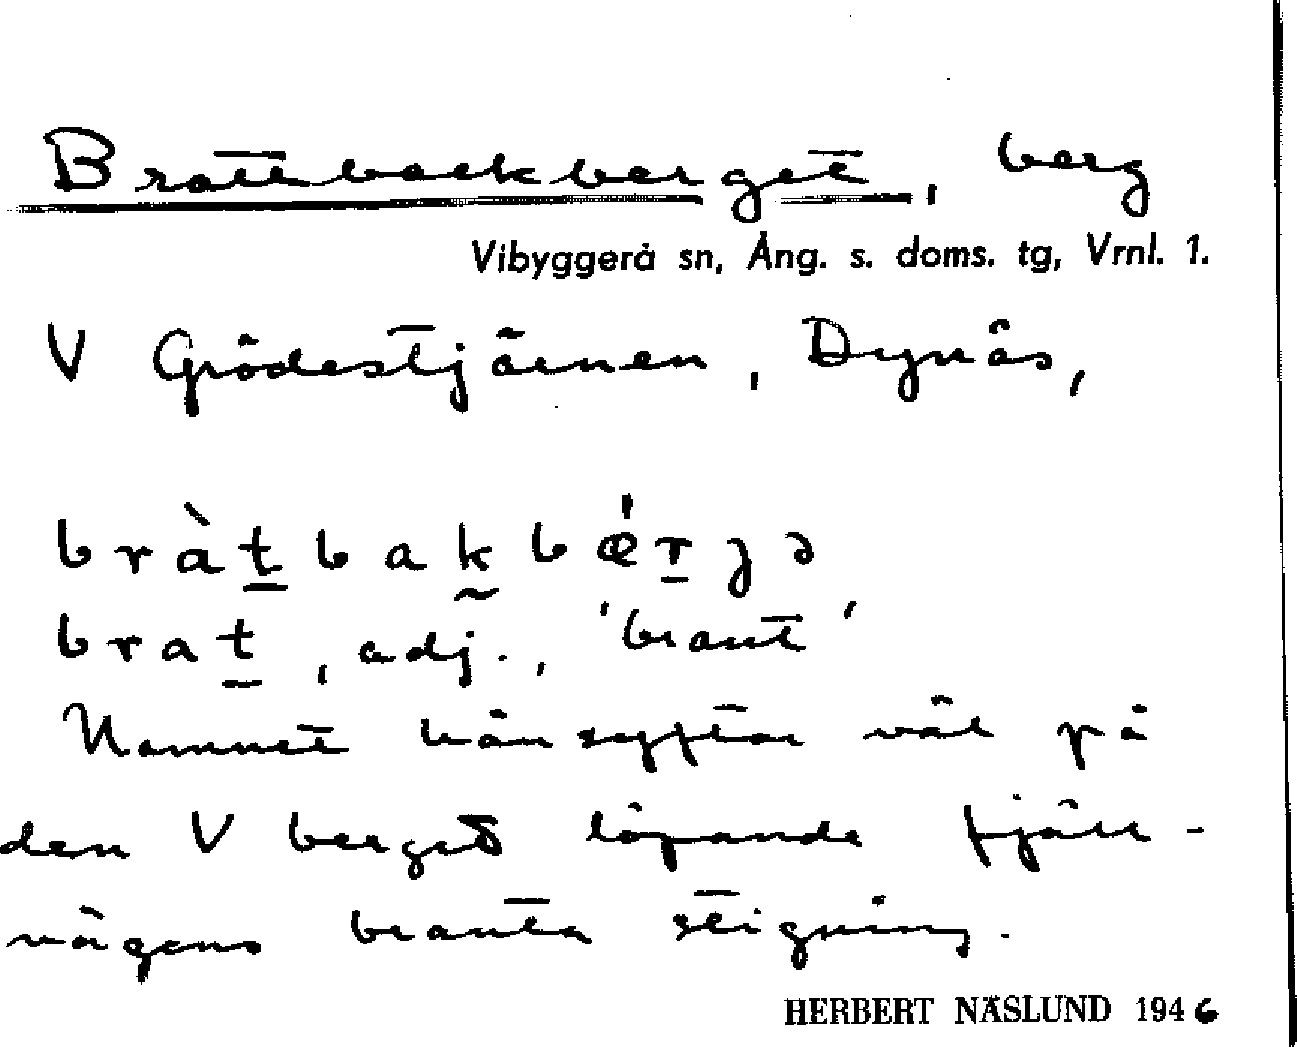 Brattbackberget, berg
Vibyggerå sn, Ång. s. doms. tg, Vrnl. 1.
V Grödestjärnen, Dynäs,
bràt̲bak̰bǽr̲ȷə
brat̲, adj., 'brant'
Namnet hänsyftar väl på
den V berget löpande fjäll-
vägens branta stigning.
HERBERT NÄSLUND 1946